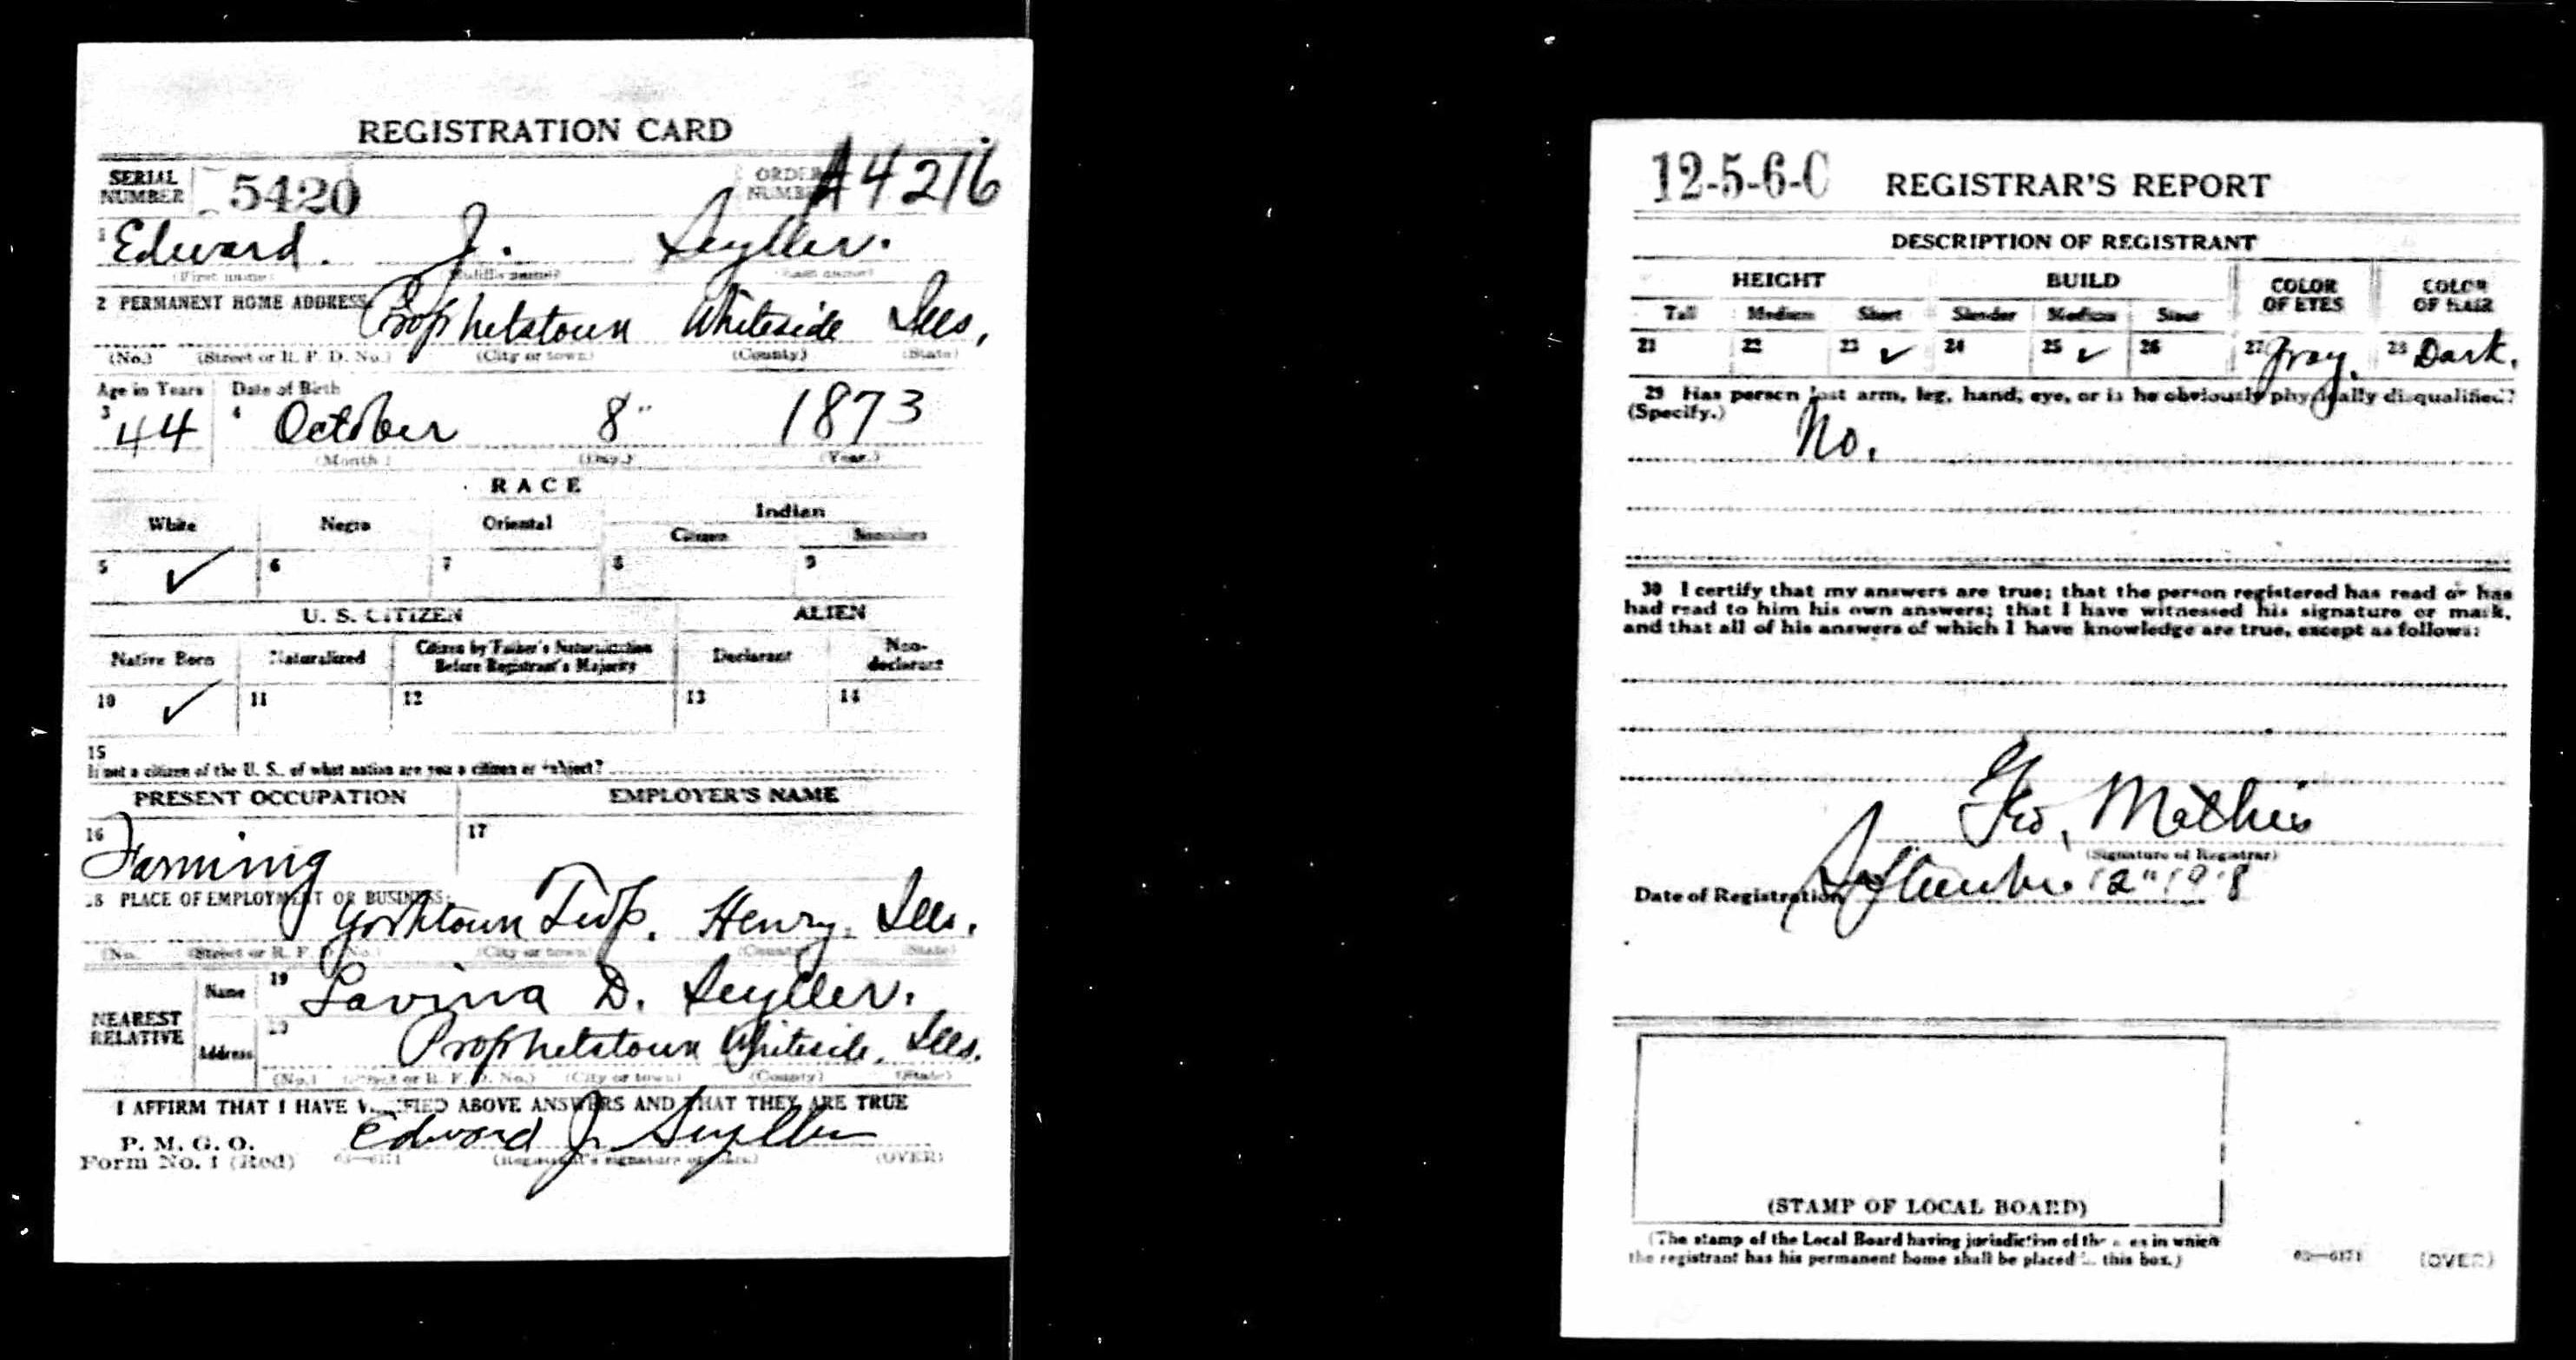 REGISTRATION CARD
SERIAL NUMBER 5420 ORDER NUMBER A4216
1 Edward. J. Seyller.
(First name) (Middle name) (Last name)
2 PERMANENT HOME ADDRESS
Prophetstown Whiteside Ills,
(No.) (Street or R. F. D. No.) (City or town) (County) (State)
Age in Years Date of Birth
3 44 4 October 8" 1873
(Month) (Day.) (Year.)
RACE
White Negro Oriental Indian
Citizen
5 ✓ 6 7 8 9
U. S. CITIZEN ALIEN
Native Born Naturalized Citizen by Father's Naturalization Before Registrant's Majority Declarant Non-declarant
10 ✓ 11 12 13 14
15
If not a citizen of the U. S., of what nation are you a citizen or subject?
PRESENT OCCUPATION EMPLOYER'S NAME
16 Farming 17
18 PLACE OF EMPLOYMENT OR BUSINESS:
Yorktown Twp. Henry. Ills.
(No. (Street or R. F. D. No.) (City or town) (County) (State)
NEAREST RELATIVE
Name 19 Lavina D. Seyller.
Address 20 Prophetstown Whiteside. Ills.
(No.) (Street or R. F. D. No.) (City or town) (County) (State)
I AFFIRM THAT I HAVE VERIFIED ABOVE ANSWERS AND THAT THEY ARE TRUE
P. M. G. O.
Form No. 1 (Red) 63—6171 Edward J. Seyller
(Registrant's signature or mark.) (OVER)
12-5-6-C REGISTRAR'S REPORT
DESCRIPTION OF REGISTRANT
HEIGHT BUILD COLOR OF EYES COLOR OF HAIR
Tall Medium Short Slender Medium Stout
21 22 23 ✓ 24 25 ✓ 26 27 Gray. 28 Dark.
29 Has person lost arm, leg, hand, eye, or is he obviously physically disqualified?
(Specify.)
No.
30 I certify that my answers are true; that the person registered has read or has
had read to him his own answers; that I have witnessed his signature or mark,
and that all of his answers of which I have knowledge are true, except as follows:
Geo. Mathis
(Signature of Registrar)
Date of Registration September 12" 1918
(STAMP OF LOCAL BOARD)
(The stamp of the Local Board having jurisdiction of the area in which
the registrant has his permanent home shall be placed in this box.)
63—6171 (OVER)